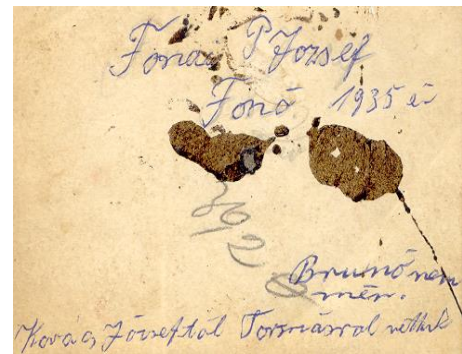 Fonai P József
Fonó 1935 év
3612
Brumónén
mén.
Kovács Józseftől Tormásról vettük